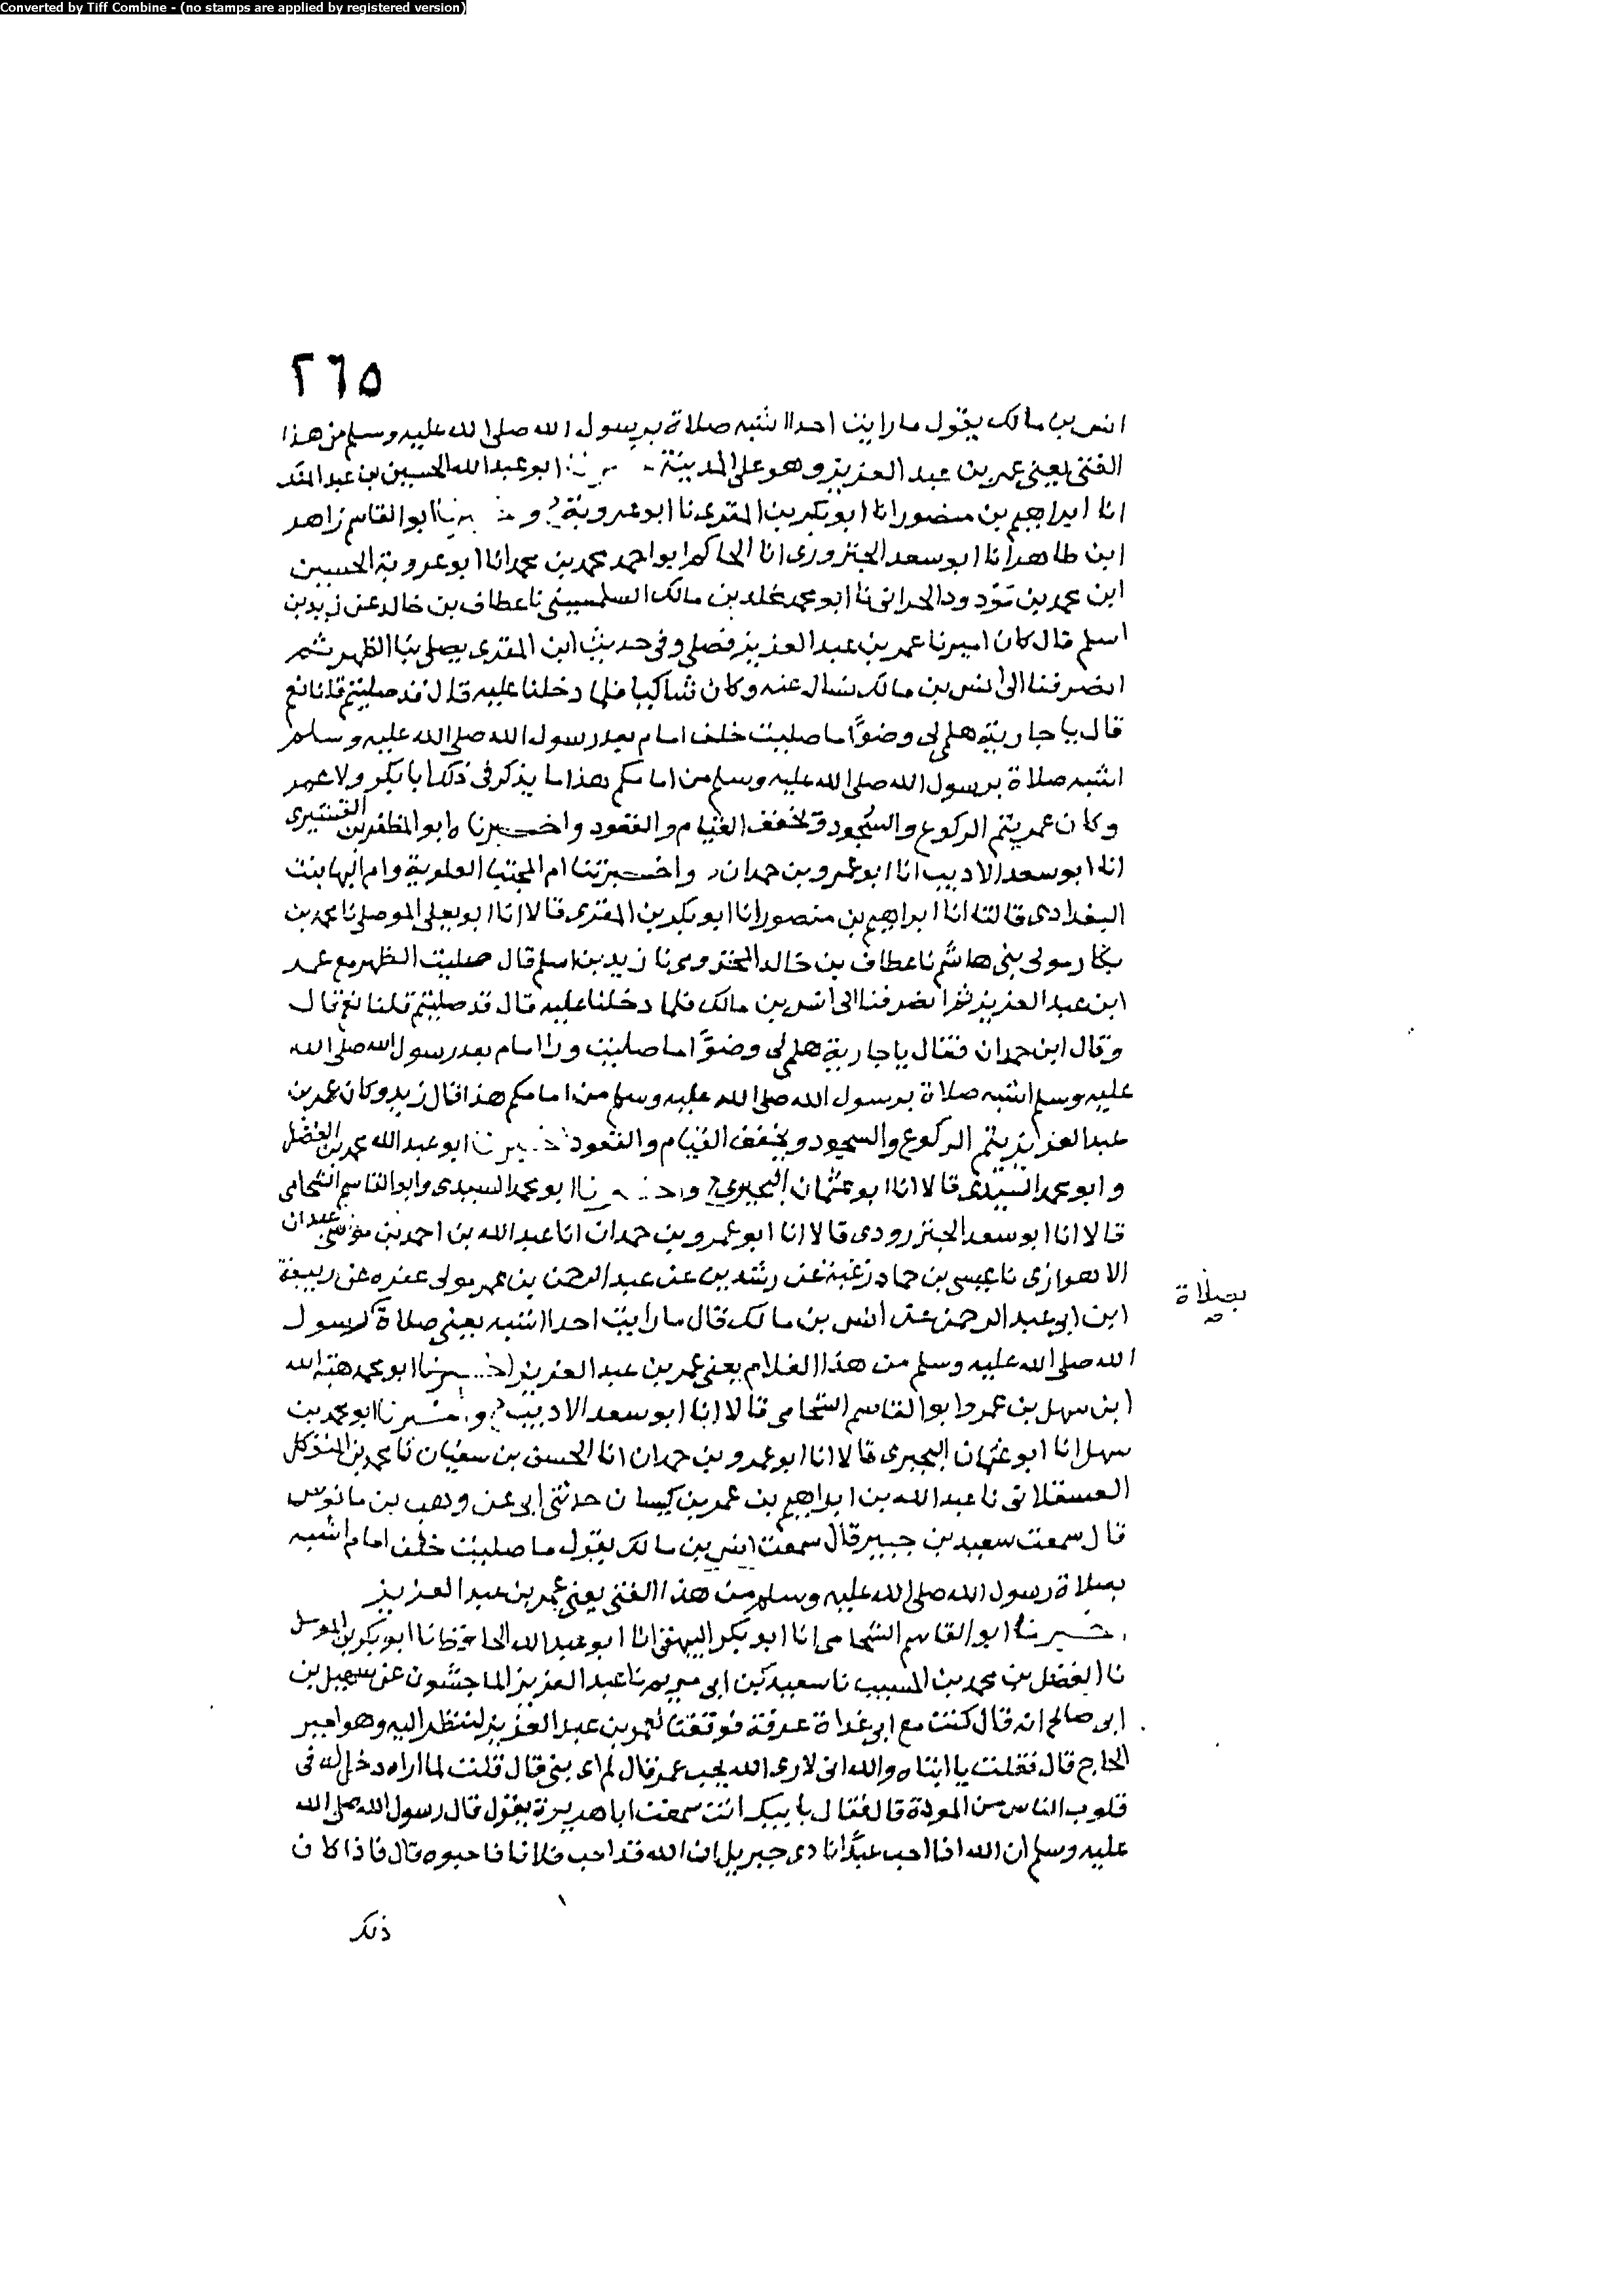 Converted by Tiff Combine - (no stamps are applied by registered version)
٢٦٥
انس بن مالك يقول ما رايت احدا اشبه صلاة برسول الله صلى الله عليه وسلم من هذا
الفتى يعنى عمر بن عبد العزيز وهو على المدينة ابو عبد الله الحسين بن عبد الملك
انا ابراهيم بن منصور انا ابو بكر بن المقرى نا ابو عروبة ح و نا ابو القاسم زاهر
ابن طاهر انا ابو سعد الجنزرودى انا الحاكم ابو احمد محمد بن محمد انا ابو عروبة الحسين
ابن محمد بن مودود الحرانى نا ابو محمد مخلد بن مالك السلمسينى نا عطاف بن خالد عن زيد بن
اسلم قال كان اميرنا عمر بن عبد العزيز فصلى وفى حديث ابن المقرى يصلى بنا الظهر ثم
انصرفنا الى انس بن مالك نسال عنه وكان شاكيا فلما دخلنا عليه قال قد صليتم قلنا نعم
قال يا جارية هلمى لى وضوًا ما صليت خلف امام بعد رسول الله صلى الله عليه وسلم
اشبه صلاة برسول الله صلى الله عليه وسلم من امامكم هذا ما يذكر فى ذلك ابا بكر ولا عمر
وكان عمر يتم الركوع والسجود ويخفف القيام والقعود واخبرنا ه ابو المظفر بن القشيرى
انا ابو سعد الاديب انا ابو عمرو بن حمدان واخبرتنا ام المجتبا العلوية وام البها بنت
البغدادى قالتا انا ابراهيم بن منصور انا ابو بكر بن المقرى قالا انا ابو يعلى الموصلى نا محمد بن
بكار مولى بنى هاشم نا عطاف بن خالد المخزومى نا زيد بن اسلم قال صليت الظهر مع عمر
ابن عبد العزيز ثم انصرفنا الى انس بن مالك فلما دخلنا عليه قال قد صليتم قلنا نعم قال
وقال ابن حمدان فقال يا جارية هلمى لى وضوًا ما صليت ورا امام بعد رسول الله صلى الله
عليه وسلم اشبه صلاة برسول الله صلى الله عليه وسلم من امامكم هذا قال زيد وكان عمر بن
عبد العزيز يتم الركوع والسجود ويخفف القيام والقعود اخبرنا ابو عبد الله محمد بن الفضل
وابو محمد السيدى قالا انا ابو عثمان البحيرى ح واخبرنا ابو محمد السيدى وابو القاسم الشحامى
قالا انا ابو سعد الجنزرودى قالا انا ابو عمرو بن حمدان انا عبد الله بن احمد بن موسى عبدان
الاهوازى نا عيسى بن حماد زغبة عن رشدين عن عبد الرحمن بن عمر مولى غفره عن ربيعة
بصلاة
ابن ابى عبد الرحمن عن انس بن مالك قال ما رايت احدا اشبه يعنى صلاة كرسول
الله صلى الله عليه وسلم من هذا الغلام يعنى عمر بن عبد العزيز اخبرنا ابو محمد هبة الله
ابن سهل بن عمر وابو القاسم الشحامى قالا انا ابو سعد الاديب ح واخبرنا ابو محمد بن
سهل انا ابو عثمان البحيرى قالا انا ابو عمرو بن حمدان انا الحسن بن سفيان نا محمد بن المتوكل
العسقلانى نا عبد الله بن ابراهيم بن عمر بن كيسان حدثنى ابى عن وهب بن مانوس
قال سمعت سعيد بن جبير قال سمعت انس بن مالك يقول ما صليت خلف امام اشبه
بصلاة رسول الله صلى الله عليه وسلم من هذا الفتى يعنى عمر بن عبد العزيز
اخبرنا ابو القاسم الشحامى انا ابو بكر البيهقى انا ابو عبد الله الحافظ انا ابو بكر بن المومل
نا الفضل بن محمد بن المسيب نا سعيد بن ابى مريم نا عبد العزيز الماجشون عن سهيل بن
ابى صالح انه قال كنت مع ابى غداة عرفة فوقفنا لعمر بن عبد العزيز لننظر اليه وهو امير
الحاج قال فقلت يا ابتاه والله انى لارى الله يحب عمر قال لم اى بنى قال قلت لما اراه دخل له فى
قلوب الناس من المودة قال فقال بابيك انت سمعت ابا هريرة يقول قال رسول الله صلى الله
عليه وسلم ان الله اذا احب عبدًا نادى جبريل ان الله قد احب فلانا فاحبوه قال فاذا كان
ذلك